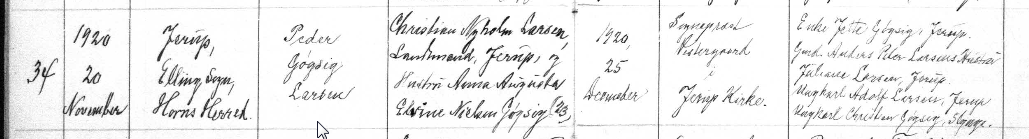 34
1920
20
November
Jerup,
Elling Sogn,
Horns Herred.
Peder
Gøgsig
Larsen
Christian Nyholm Larsen,
Landmand, Jerup, og
Hustru Anna Augusta
Elvine Nielsen Gøgsig (23)
1920,
25
December
Sognepræst
Vestergaard
i
Jerup Kirke.
Enke Jette Gøgsig, Jerup.
Gmd. Anders Peter Larsens Hustru
Juliane Larsen, Jerup.
Ungkarl Adolf Larsen, Jerup
Ungkarl Christian Gøgsig,